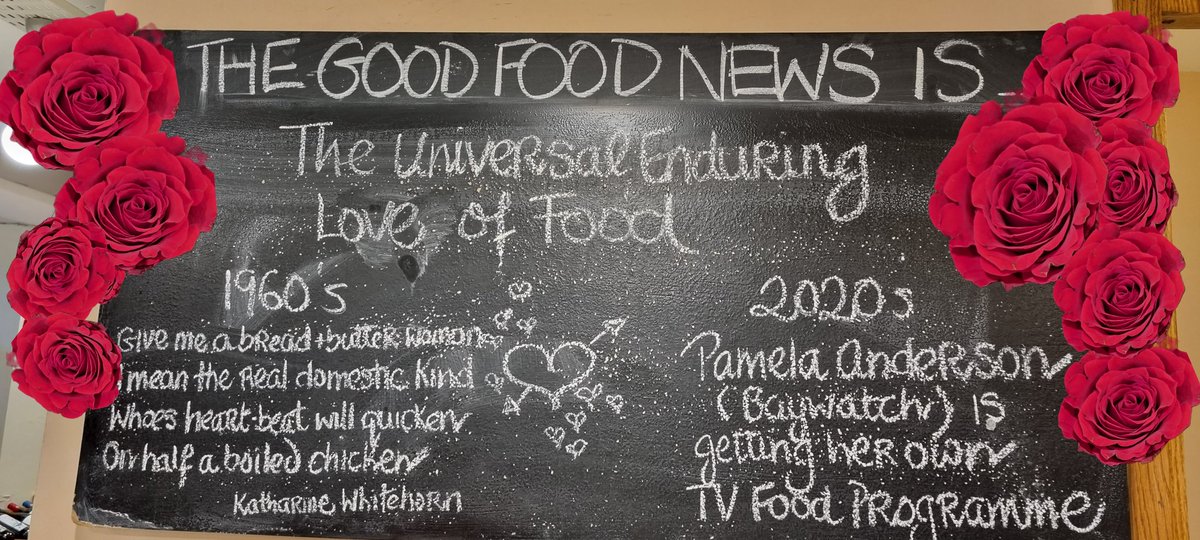 THE GOOD FOOD NEWS IS
The Universal Enduring
Love, of Food
1960s
Give me a bread + butter woman
I mean the real domestic kind
Whoes heart-beat will quicken
On half a boiled chicken
Katharine Whitehorn
2020s
Pamela Anderson
(Baywatch) is
getting her own
TV Food Programme